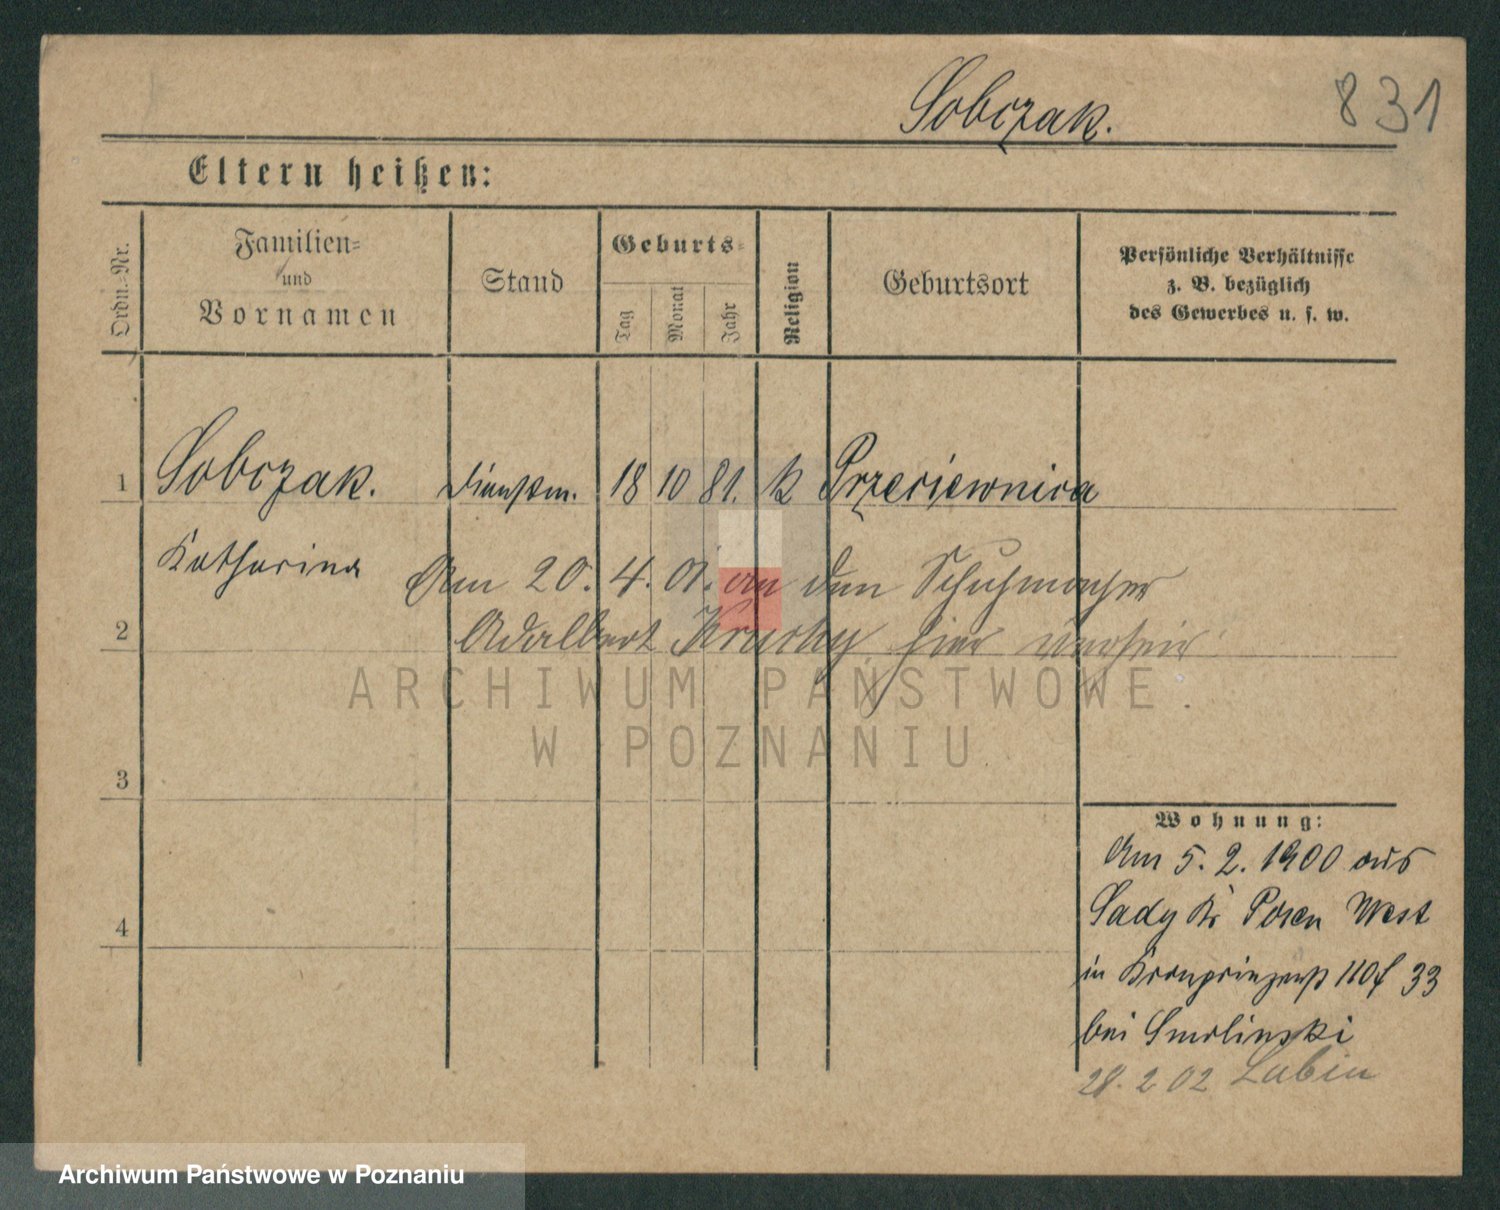 Sobczak.
831
Eltern heißen:
Ordn.-Nr.
Familien-
und
Vornamen
Stand
Geburts-
Tag
Monat
Jahr
Religion
Geburtsort
Persönliche Verhältnisse
z. B. bezüglich
des Gewerbes u. s. w.
1 Sobczak. Dienstm. 18 10 81. k Przeciewnica
Katharina
Am 20. 4. 01. an den Schuhmacher
2
Adalbert hier verheir
ARCHIWUM PAŃSTWOWE
W POZNANIU
3
Wohnung:
Am 5. 2. 1900 aus
Sady Kr Posen West
4
in Kronprinzenst 110f 33
bei Smolinski
28. 2 02 Lubin
Archiwum Państwowe w Poznaniu